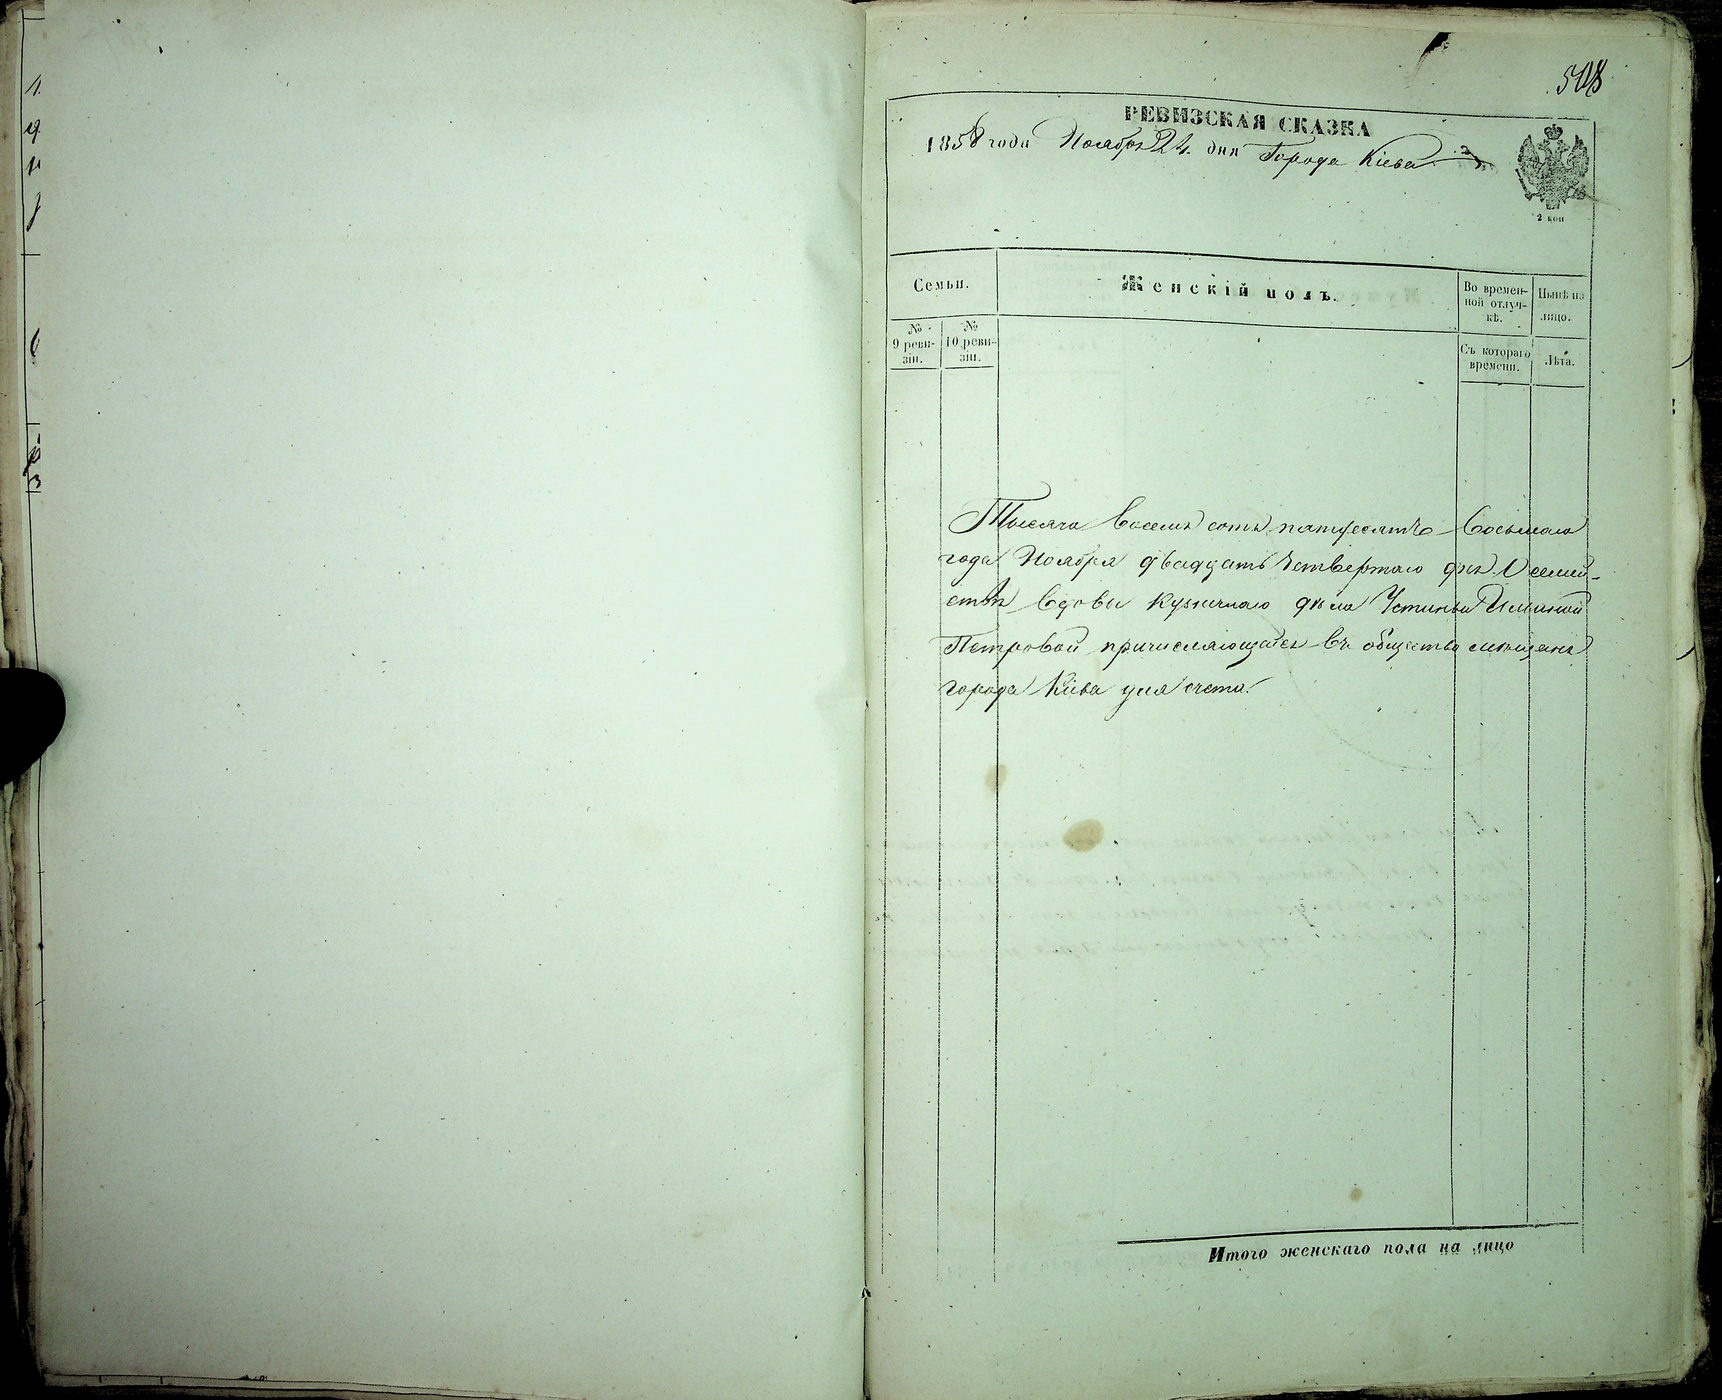 508
РЕВИЗСКАЯ СКАЗКА
1858 года Ноября 24 дня Города Кіева
2 коп
Семьи.
Женскій полъ.
Во времен-
ной отлуч-
кѣ.
Нынѣ на
лицо.
№
9 реви-
зіи.
№
10 реви-
зіи.
Съ котораго
времени.
Лѣта.
Тысяча восемь сотъ пятьдесятъ восьмаго
года Ноября двадцать четвертаго дня. О семей-
ствѣ вдовы кузнечнаго дѣла Устиньи
Петровой причисляющейся въ общество мѣщанъ
города Кіева для счета.
Итого женскаго пола на лицо